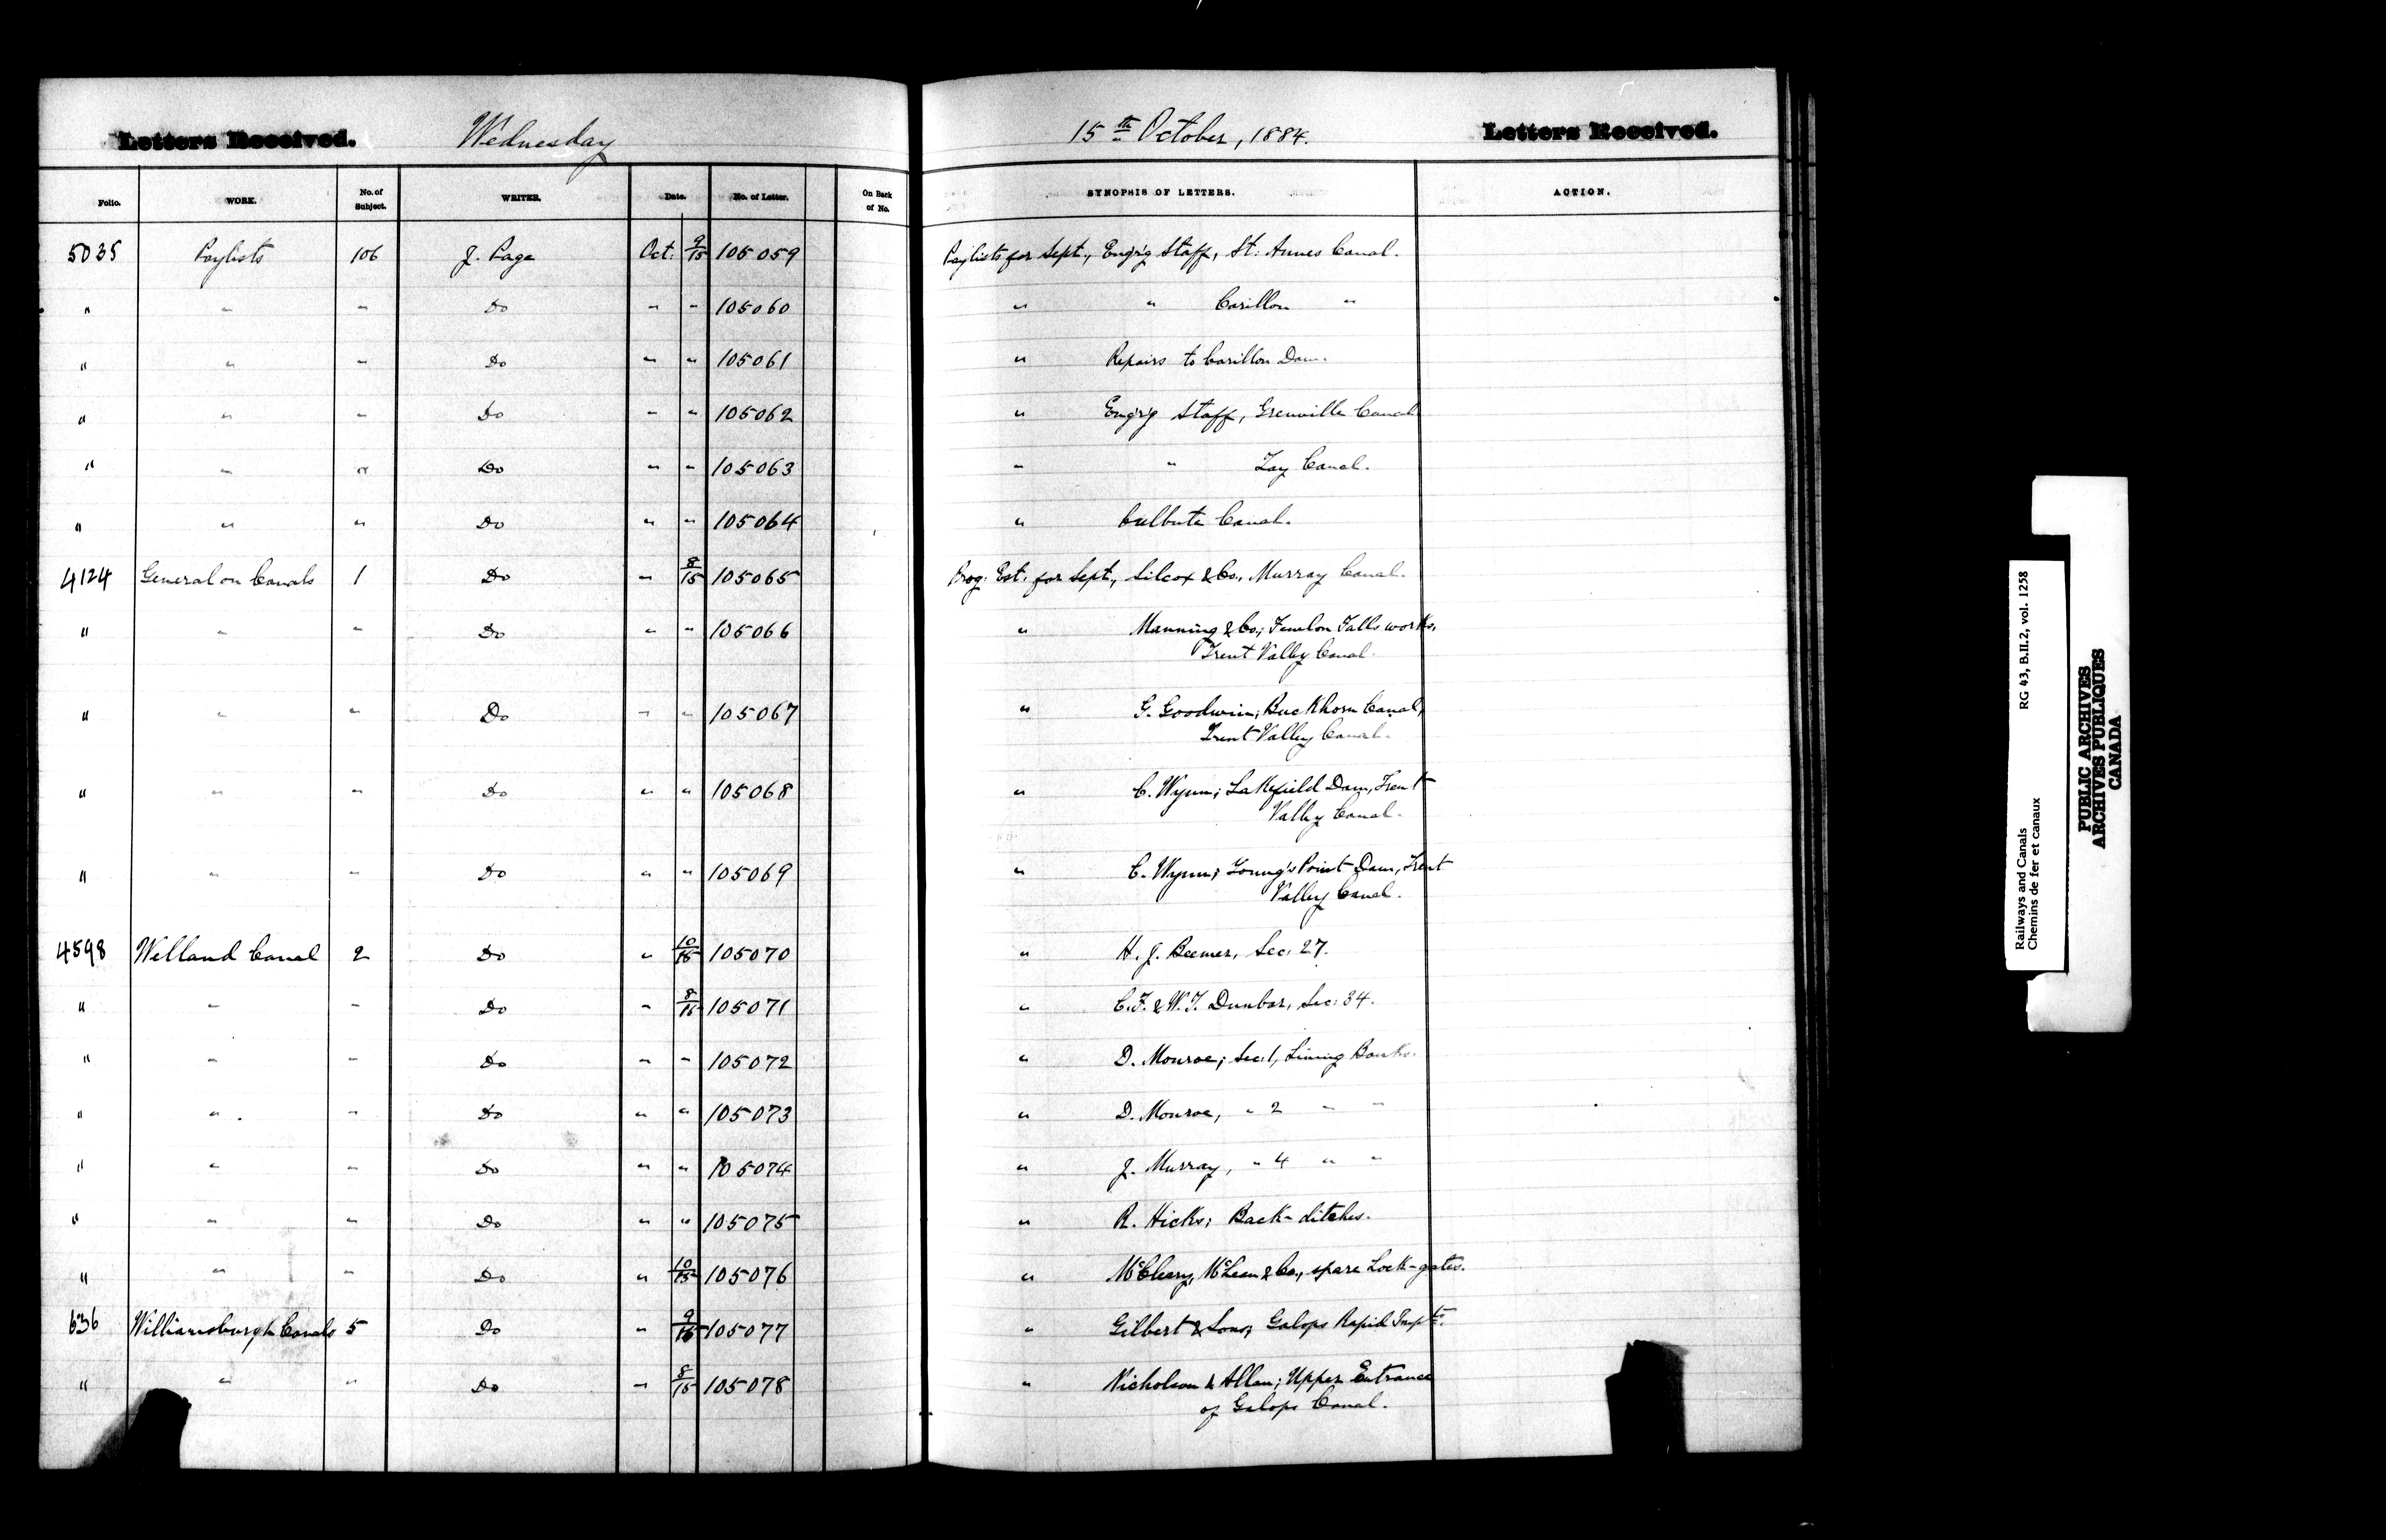 Letters Received. Wednesday 15th October, 1884. Letters Received.
Folio. WORK. No. of Subject. WRITER. Date. No. of Letter. On Back of No. SYNOPSIS OF LETTERS. ACTION.
5035 Paylists 106 J. Page Oct. 9/15 105059 Paylists for Sept., Eng'r'g Staff, St. Annes Canal.
" " " Do " " 105060 " " Carillon "
" " " Do " " 105061 " Repairs to Carillon Dam.
" " " Do " " 105062 " Eng'r'g Staff, Grenville Canal
" " " Do " " 105063 " " Tay Canal.
" " " Do " " 105064 " Culbute Canal.
4124 General on Canals 1 Do " 8/15 105065 Prog. Est. for Sept., Silcox & Co., Murray Canal.
" " " Do " " 105066 " Manning & Co.; Fenelon Falls works,
Trent Valley Canal.
" " " Do " " 105067 " G. Goodwin; Buckhorn Canal,
Trent Valley Canal.
" " " Do " " 105068 " C. Wynn; Lakefield Dam, Trent
Valley Canal.
" " " Do " " 105069 " C. Wynn; Young's Point Dam, Trent
Valley Canal.
4598 Welland Canal 2 Do " 10/15 105070 " H. J. Beemer, Sec: 27.
" " " Do " 8/15 105071 " C. F. & W. J. Dunbar, Sec: 34.
" " " Do " " 105072 " D. Monroe; Sec: 1, Lining Banks.
" " " Do " " 105073 " D. Monroe, " 2 " "
" " " Do " " 105074 " J. Murray, " 4 " "
" " " Do " " 105075 " R. Hicks; Back-ditches.
" " " Do " 10/15 105076 " McCleary, McLean & Co., spare Lock-gates.
636 Williamsburgh Canals 5 Do " 9/15 105077 " Gilbert & Sons; Galops Rapid Impts.
" " " Do " 8/15 105078 " Nicholson & Allan; Upper Entrance
of Galops Canal.
Railways and Canals RG 43, B.II.2, vol. 1258
Chemins de fer et canaux
PUBLIC ARCHIVES
ARCHIVES PUBLIQUES
CANADA